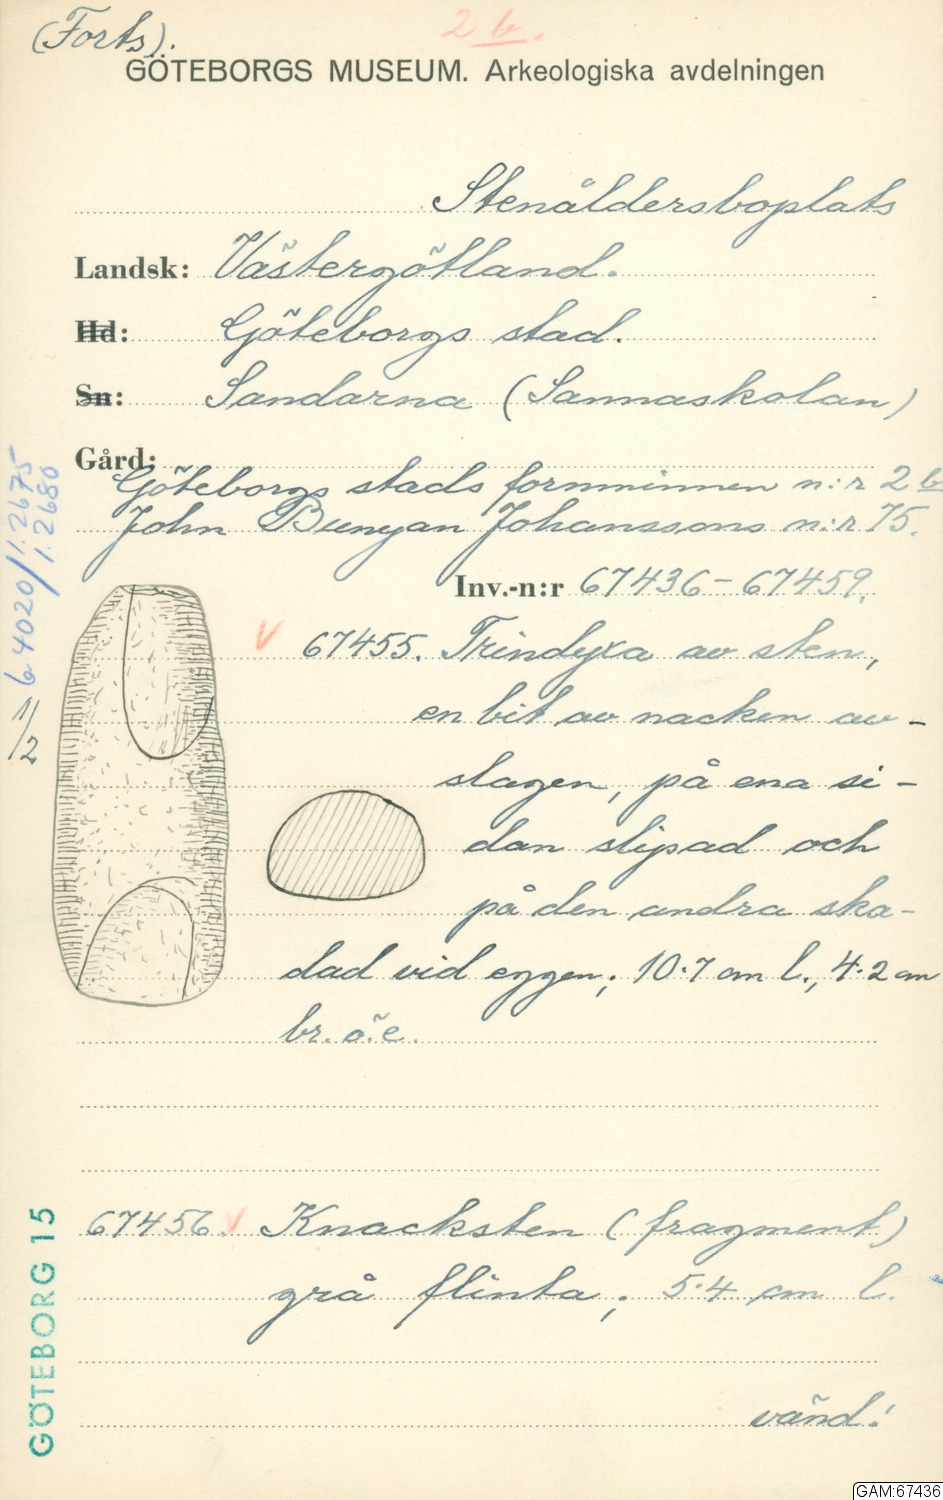 (Forts).
2 b.
GÖTEBORGS MUSEUM. Arkeologiska avdelningen
Stenåldersboplats
Landsk: Västergötland.
Hd: Göteborgs stad.
Sn: Sandarna (Sannaskolan)
Gård:
Göteborgs stads fornminnen n:r 2 b
John Bunyan Johanssons n:r 75.
Inv.-n:r 67436–67459.
b 4020/1.2675
/1.2680
1/2
67455. Trindyxa av sten,
en bit av nacken av-
slagen, på ena si-
dan slipad och
på den andra ska-
dad vid eggen; 10.7 cm l., 4.2 cm
br. ö. e.
67456. Knacksten (fragment)
grå flinta; 5.4 cm l.
vänd!
GÖTEBORG 15
GAM:67436